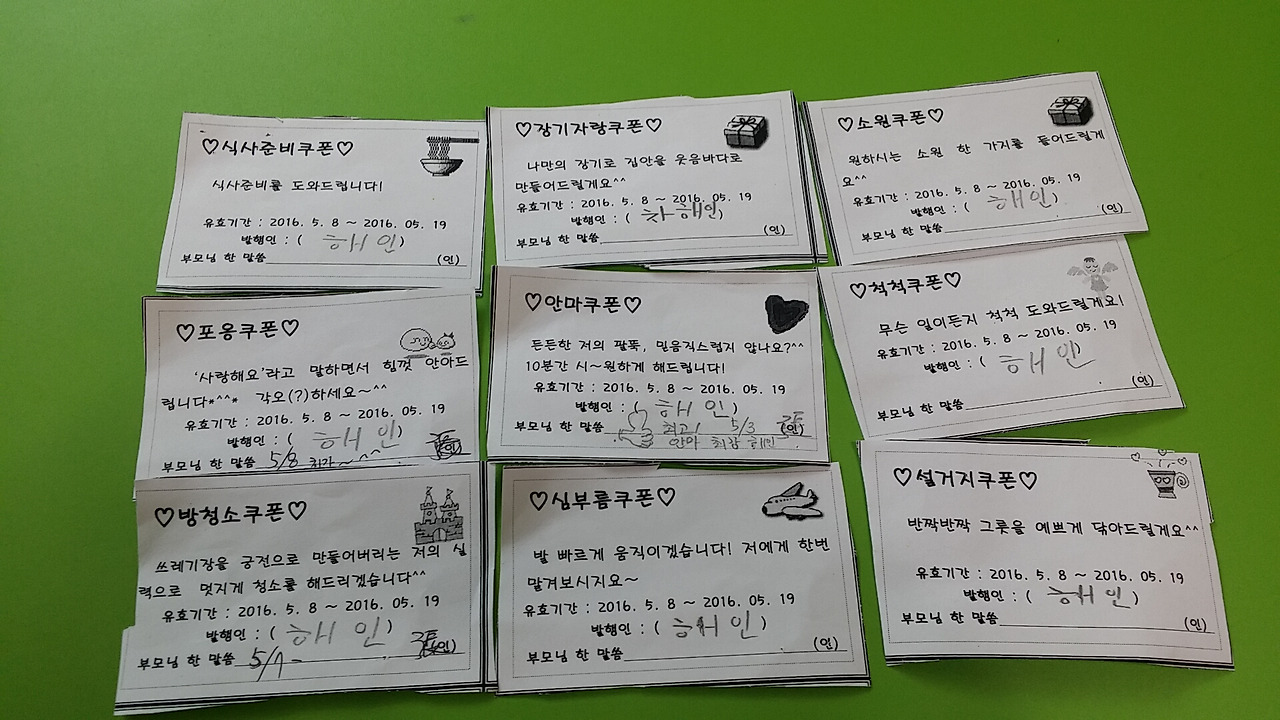 ♡식사준비쿠폰♡
식사준비를 도와드립니다!
유효기간 : 2016. 5. 8 ~ 2016. 05. 19
발행인 : ( 해인)
부모님 한 말씀 (인)
♡장기자랑쿠폰♡
나만의 장기로 집안을 웃음바다로
만들어드릴게요^^
유효기간 : 2016. 5. 8 ~ 2016. 05. 19
발행인 : ( 차해인)
부모님 한 말씀 (인)
♡소원쿠폰♡
원하시는 소원 한 가지를 들어드릴게
요^^
유효기간 : 2016. 5. 8 ~ 2016. 05. 19
발행인 : ( 해인)
부모님 한 말씀 (인)
♡포옹쿠폰♡
'사랑해요'라고 말하면서 힘껏 안아드
립니다*^^* 각오(?)하세요~^^
유효기간 : 2016. 5. 8 ~ 2016. 05. 19
발행인 : ( 해인)
부모님 한 말씀 5/8 최고~^^ (인)
♡안마쿠폰♡
든든한 저의 팔뚝, 믿음직스럽지 않나요?^^
10분간 시~원하게 해드립니다!
유효기간 : 2016. 5. 8 ~ 2016. 05. 19
발행인 : ( 해인)
부모님 한 말씀 최고! 5/3 (인)
안마
♡척척쿠폰♡
무슨 일이든지 척척 도와드릴게요!
유효기간 : 2016. 5. 8 ~ 2016. 05. 19
발행인 : ( 해인)
부모님 한 말씀 (인)
♡방청소쿠폰♡
쓰레기장을 궁전으로 만들어버리는 저의 실
력으로 멋지게 청소를 해드리겠습니다^^
유효기간 : 2016. 5. 8 ~ 2016. 05. 19
발행인 : ( 해인)
부모님 한 말씀 (인)
♡심부름쿠폰♡
발 빠르게 움직이겠습니다! 저에게 한번
맡겨보시지요~
유효기간 : 2016. 5. 8 ~ 2016. 05. 19
발행인 : ( 해인)
부모님 한 말씀 (인)
♡설거지쿠폰♡
반짝반짝 그릇을 예쁘게 닦아드릴게요^^
유효기간 : 2016. 5. 8 ~ 2016. 05. 19
발행인 : ( 해인)
부모님 한 말씀 (인)